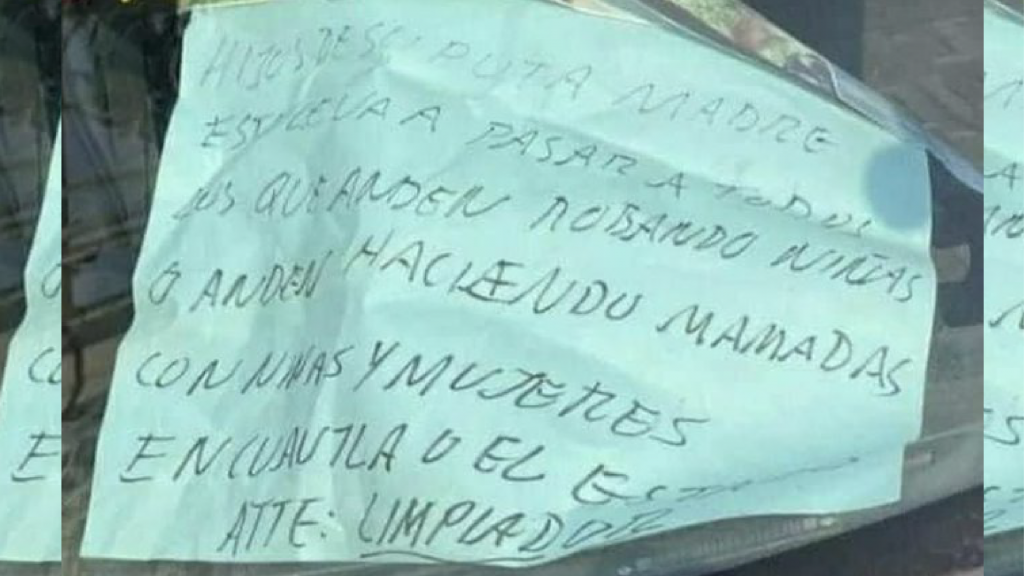 HIJOS DE SU PUTA MADRE
ESTO LEVA A PASAR A TODOS
LOS QUE ANDEN ROBANDO NIÑAS
O ANDEN HACIENDO MAMADAS
CON NIÑAS Y MUJERES
EN CUAUTLA O EL ESTADO
ATTE: LIMPIADOR